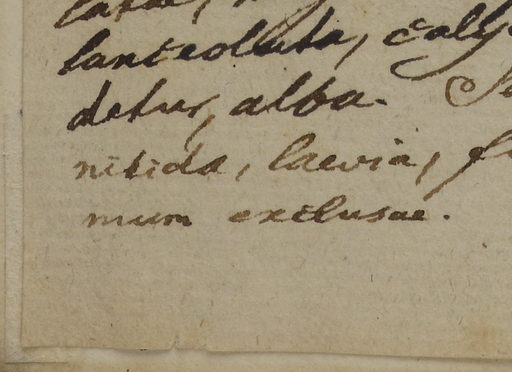 lanceolata, caly
detur, alba. S
nitida, laevia, f
mum exclusae.